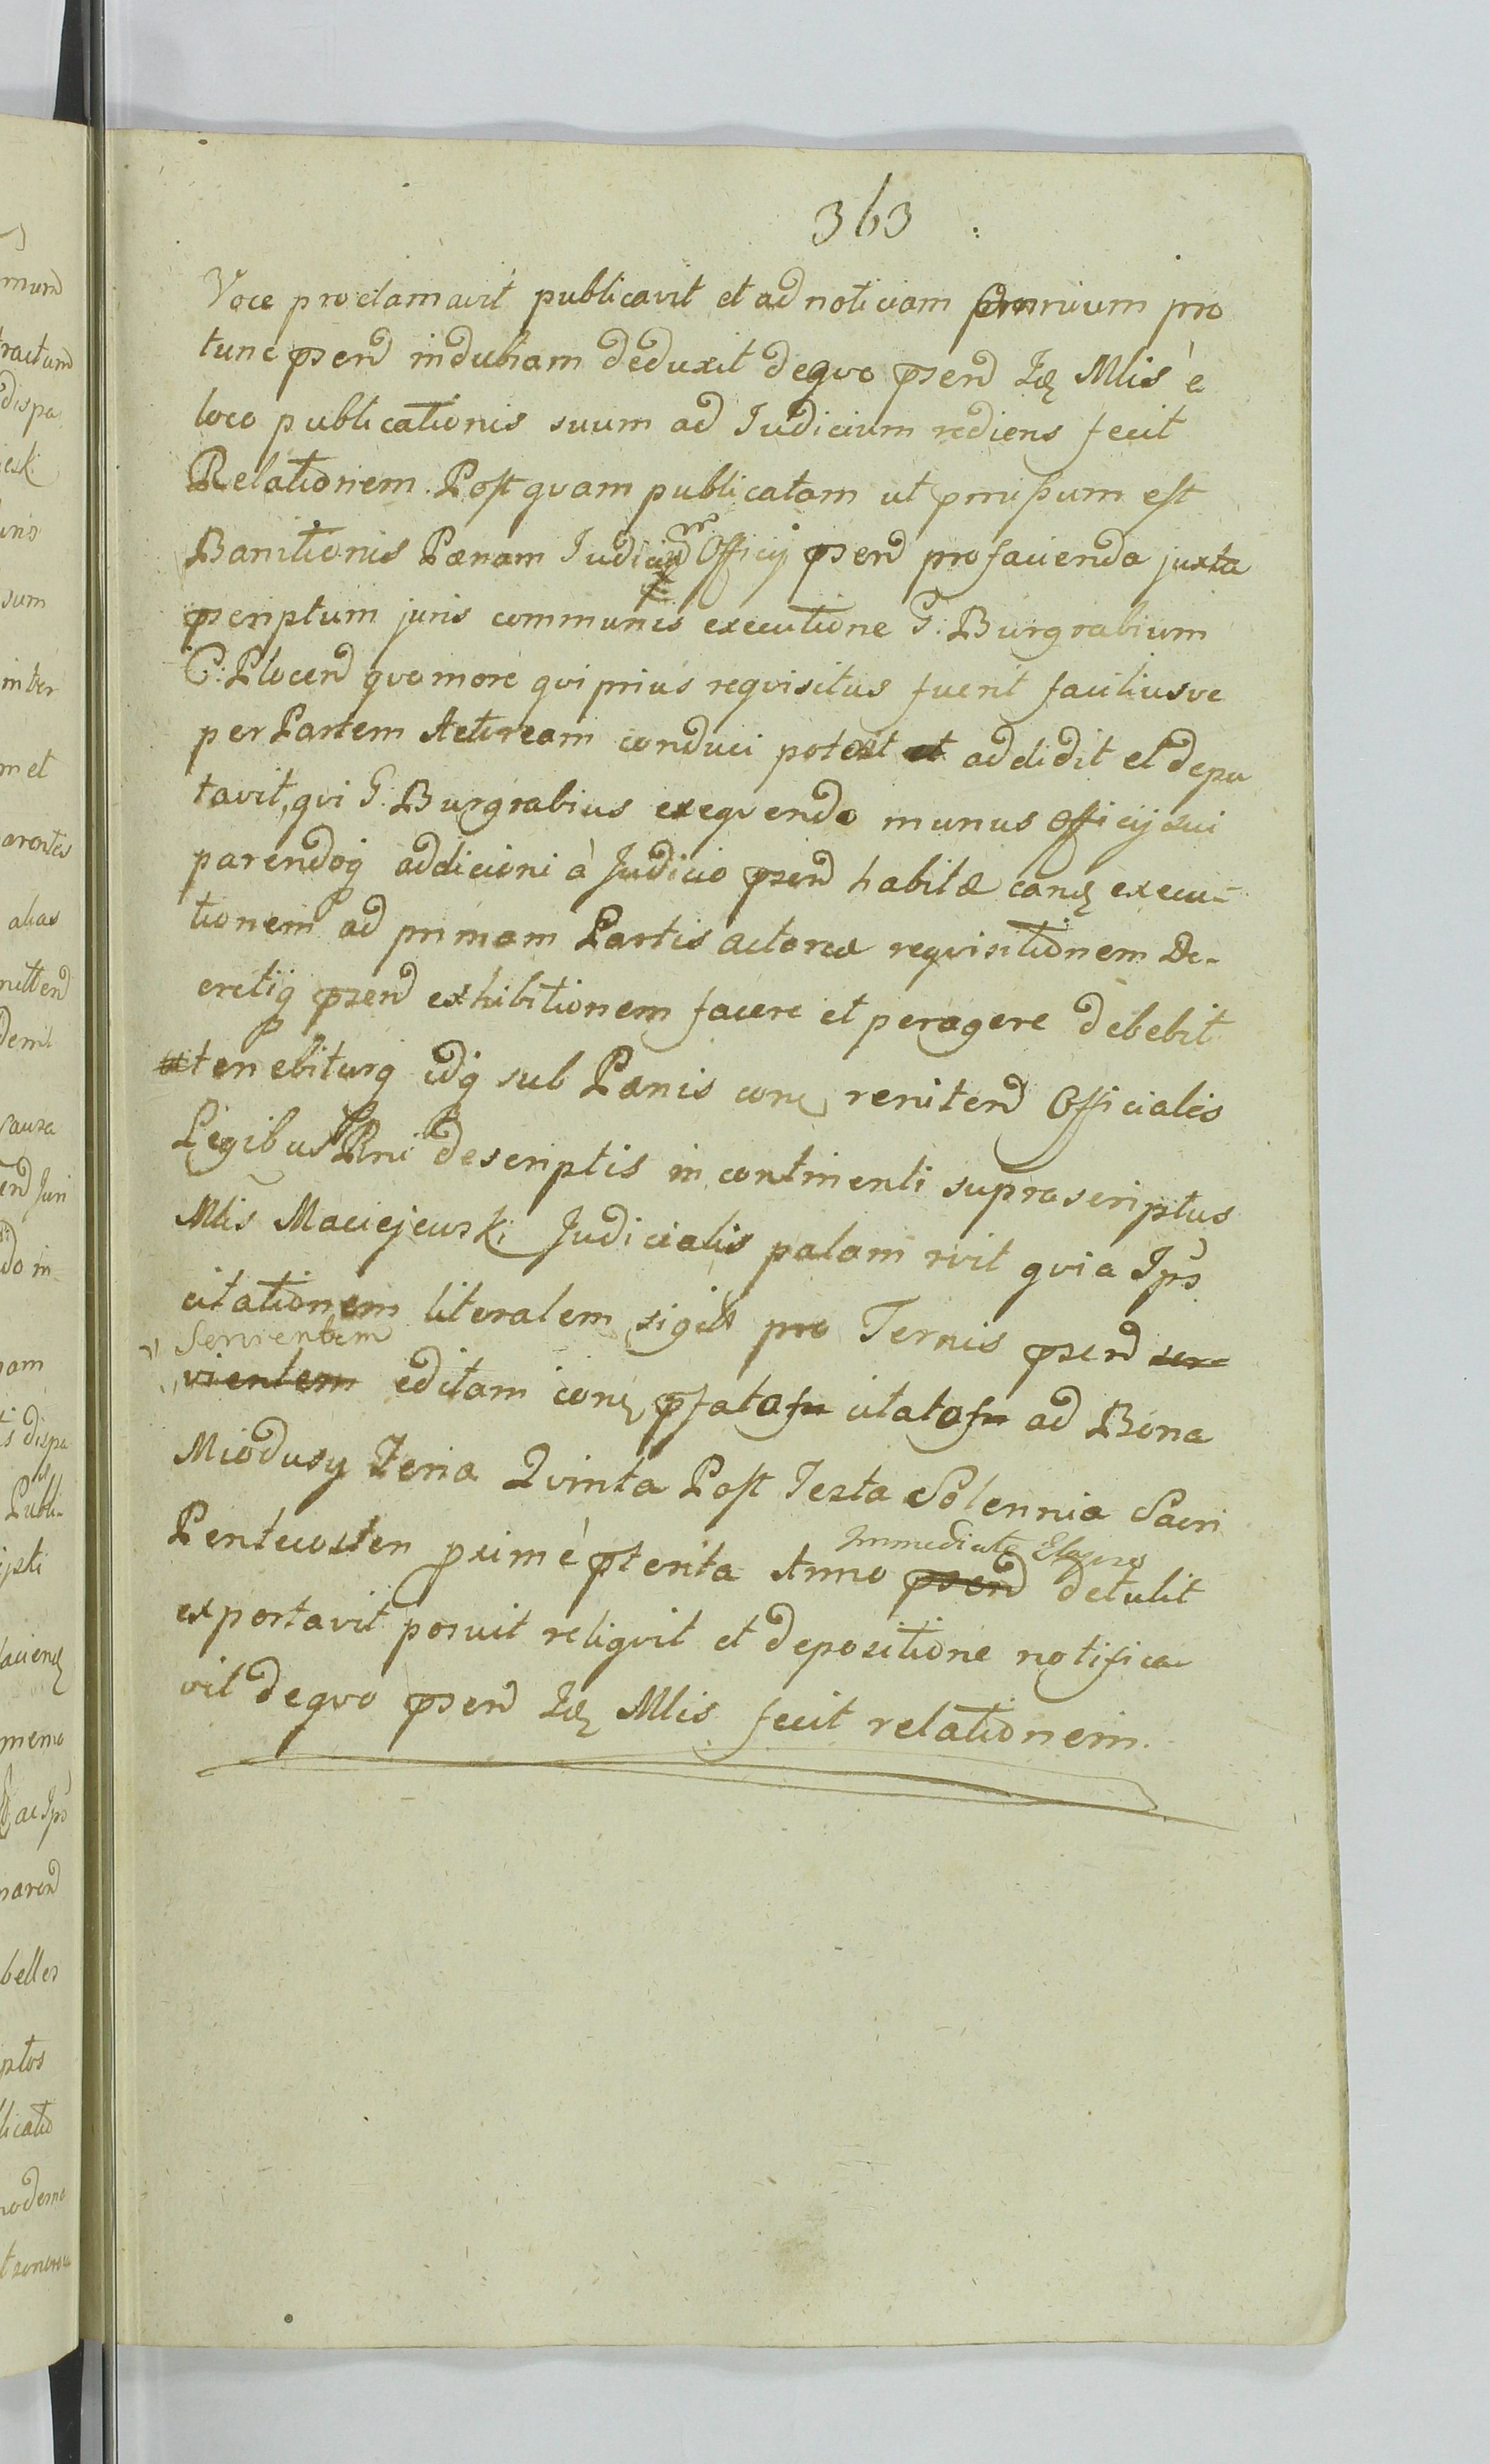 363
Voce proclamavit publicavit et ad noticiam omnium pro
tunc psend indubiam deduxit de quo psend Idq Mlis è
loco publicationis suum ad Judicium rediens fecit
Relationem. Post quam publicatam ut pmissum est
Banitionis Pænam Judicium Officij psend pro facienda juxta
pscriptum juris communis executione G: Burgrabium
C: Plocend quo more qui prius requisitus fuerit faciliusve
per Partem Actoream conduci potest et addidit et depu
tavit, qui G: Burgrabius exequendo munus officij sui
parendoq addicioni à Judicio psend habitæ eand execu-
tionem ad primam Partis actoreæ requisitionem De-
cretiq psend exhibitionem facere et peragere debebit
tenebiturq idq sub Pænis con renitend Officiales
Legibus Rni descriptis in continenti suprascriptus
Mlis Maciejewski Judicialis palam rvit quia Ips
citationem literalem sigill pro Ternis psend ser-
Servientem
vientem editam con pfata citata ad Bona
Miodusy Feria Quinta Post Festa Solennia Sacri
Immediate Elapso
Pentecosten pximè pterita Anno psend detulit
exportavit posuit reliquit et depositione notifica-
vit de quo psend Idq Mlis fecit relationem.
mund
tractum
dispa
sum
inter
met
arentes
alias
nittend
Causa
end Juri
do in
nam
s dispa
Publi-
ipti
ac Ips
belles
ptos
licatio